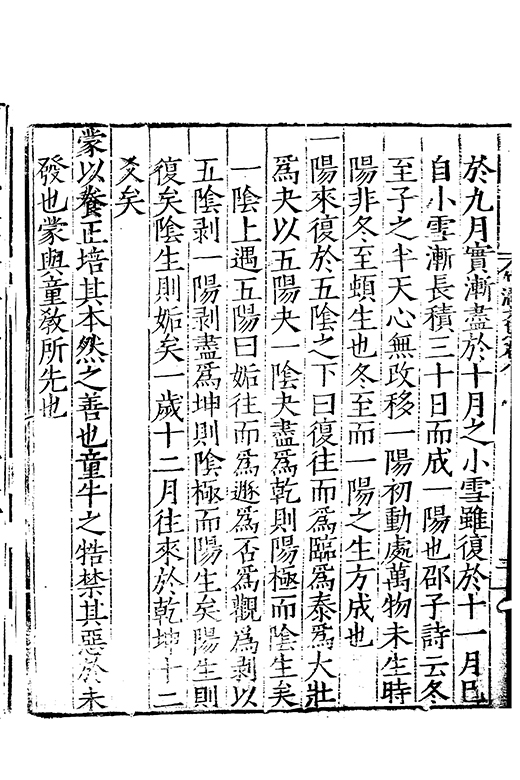 於九月實漸盡於十月之小雪雖復於十一月巳
自小雪漸長積三十日而成一陽也邵子詩云冬
至子之半天心無改移一陽初動處萬物未生時
陽非冬至頓生也冬至而一陽之生方成也
一陽來復於五陰之下曰復往而爲臨爲泰爲大壯
爲夬以五陽夬一陰夬盡爲乾則陽極而陰生矣
一陰上遇五陽曰姤往而爲遯爲否爲觀爲剥以
五陰剥一陽剥盡爲坤則陰極而陽生矣陽生則
復矣陰生則姤矣一歲十二月往來於乾坤十二
爻矣
蒙以養正培其本然之善也童牛之牿禁其惡於未
發也蒙與童敎所先也